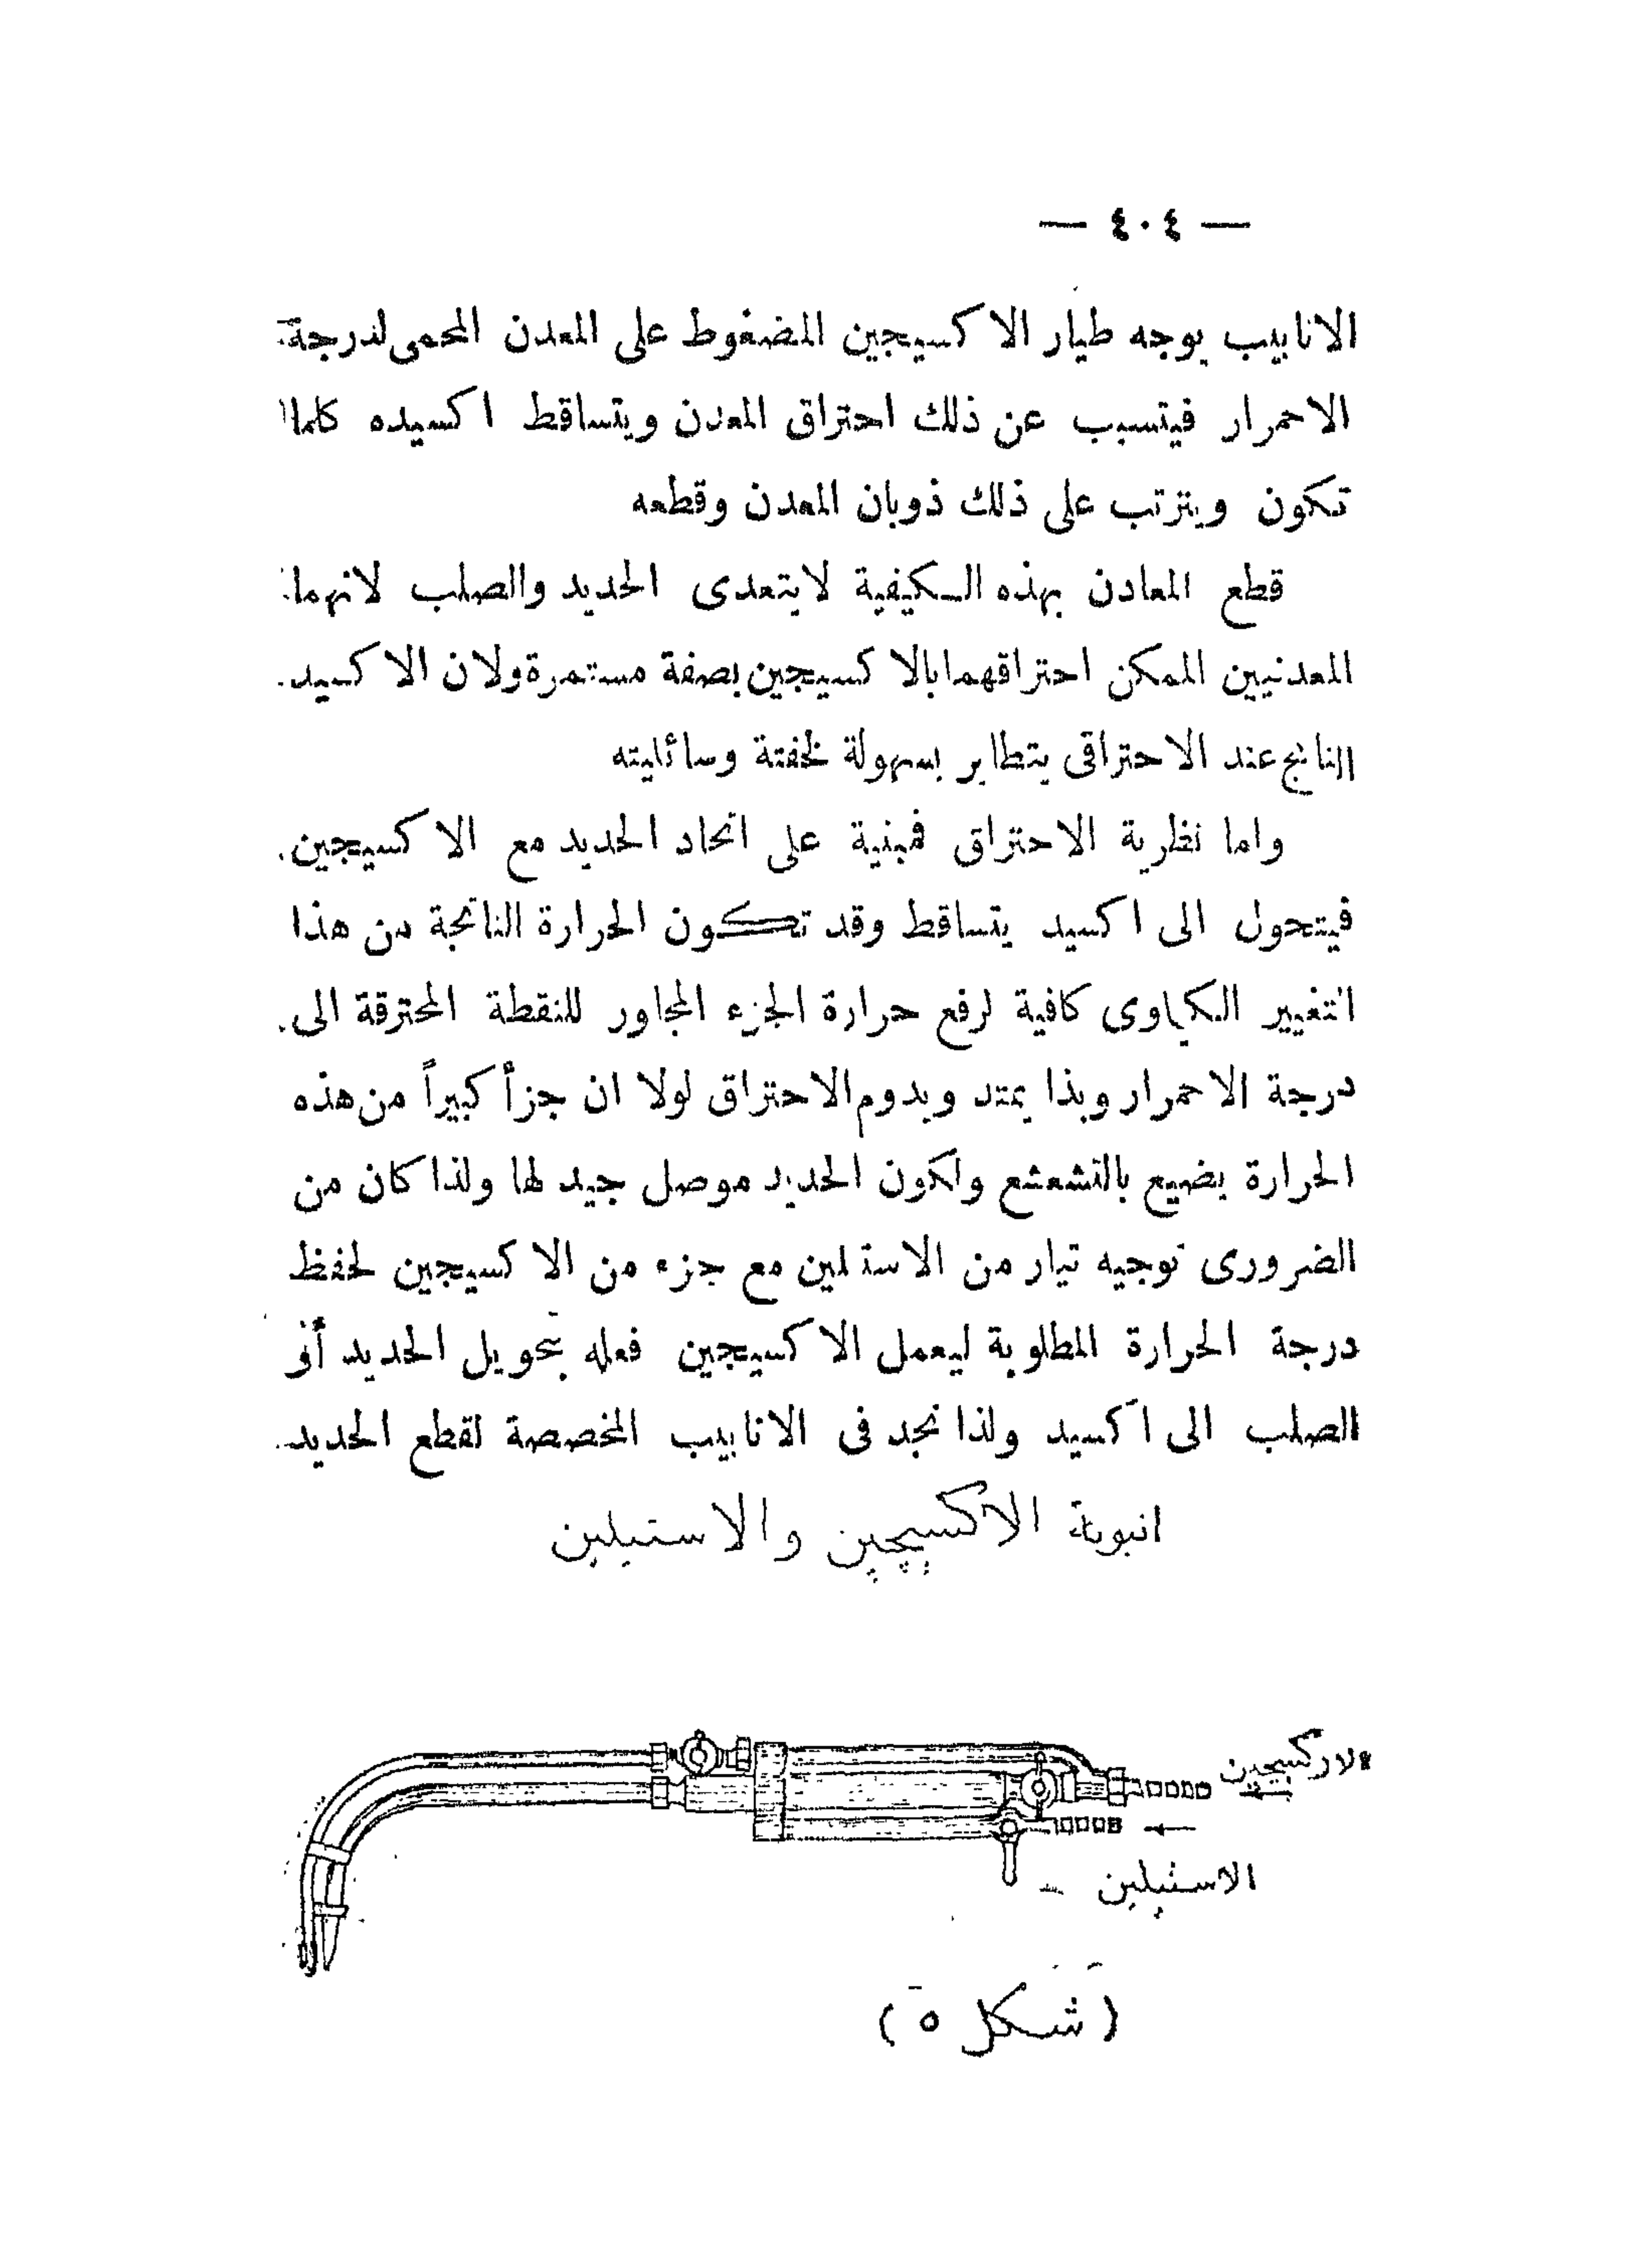 — ٤٠٤ —
الانابيب يوجه طيار الاكسيجين المضغوط على المعدن المحمى لدرجة
الاحمرار فيتسبب عن ذلك احتراق المعدن ويتساقط اكسيده كلما
تكون ويترتب على ذلك ذوبان المعدن وقطعه
قطع المعادن بهذه الكيفية لايتعدى الحديد والصلب لانهما
المعدنيين الممكن احتراقهما بالاكسيجين بصفة مستمرة ولان الاكسيد
الناتج عند الاحتراق يتطاير بسهولة لخفتة وسائليته
واما نظرية الاحتراق فمبنية على اتحاد الحديد مع الاكسيجين
فيتحول الى اكسيد يتساقط وقد تكون الحرارة الناتجة من هذا
التغيير الكياوى كافية لرفع حرارة الجزء المجاور للنقطة المحترقة الى
درجة الاحمرار وبذا يمتد ويدوم الاحتراق لولا ان جزأ كبيراً من هذه
الحرارة يضيع بالتشعشع ولكون الحديد موصل جيد لها ولذا كان من
الضرورى توجيه تيار من الاستلين مع جزء من الاكسيجين لحفظ
درجة الحرارة المطلوبة ليعمل الاكسيجين فعله بتحويل الحديد أو
الصلب الى اكسيد ولذا نجد فى الانابيب المخصصة لقطع الحديد
انبوبة الاكسيجين والاستيلين
الاكسيجين
الاستيلين
(شكل ٥)